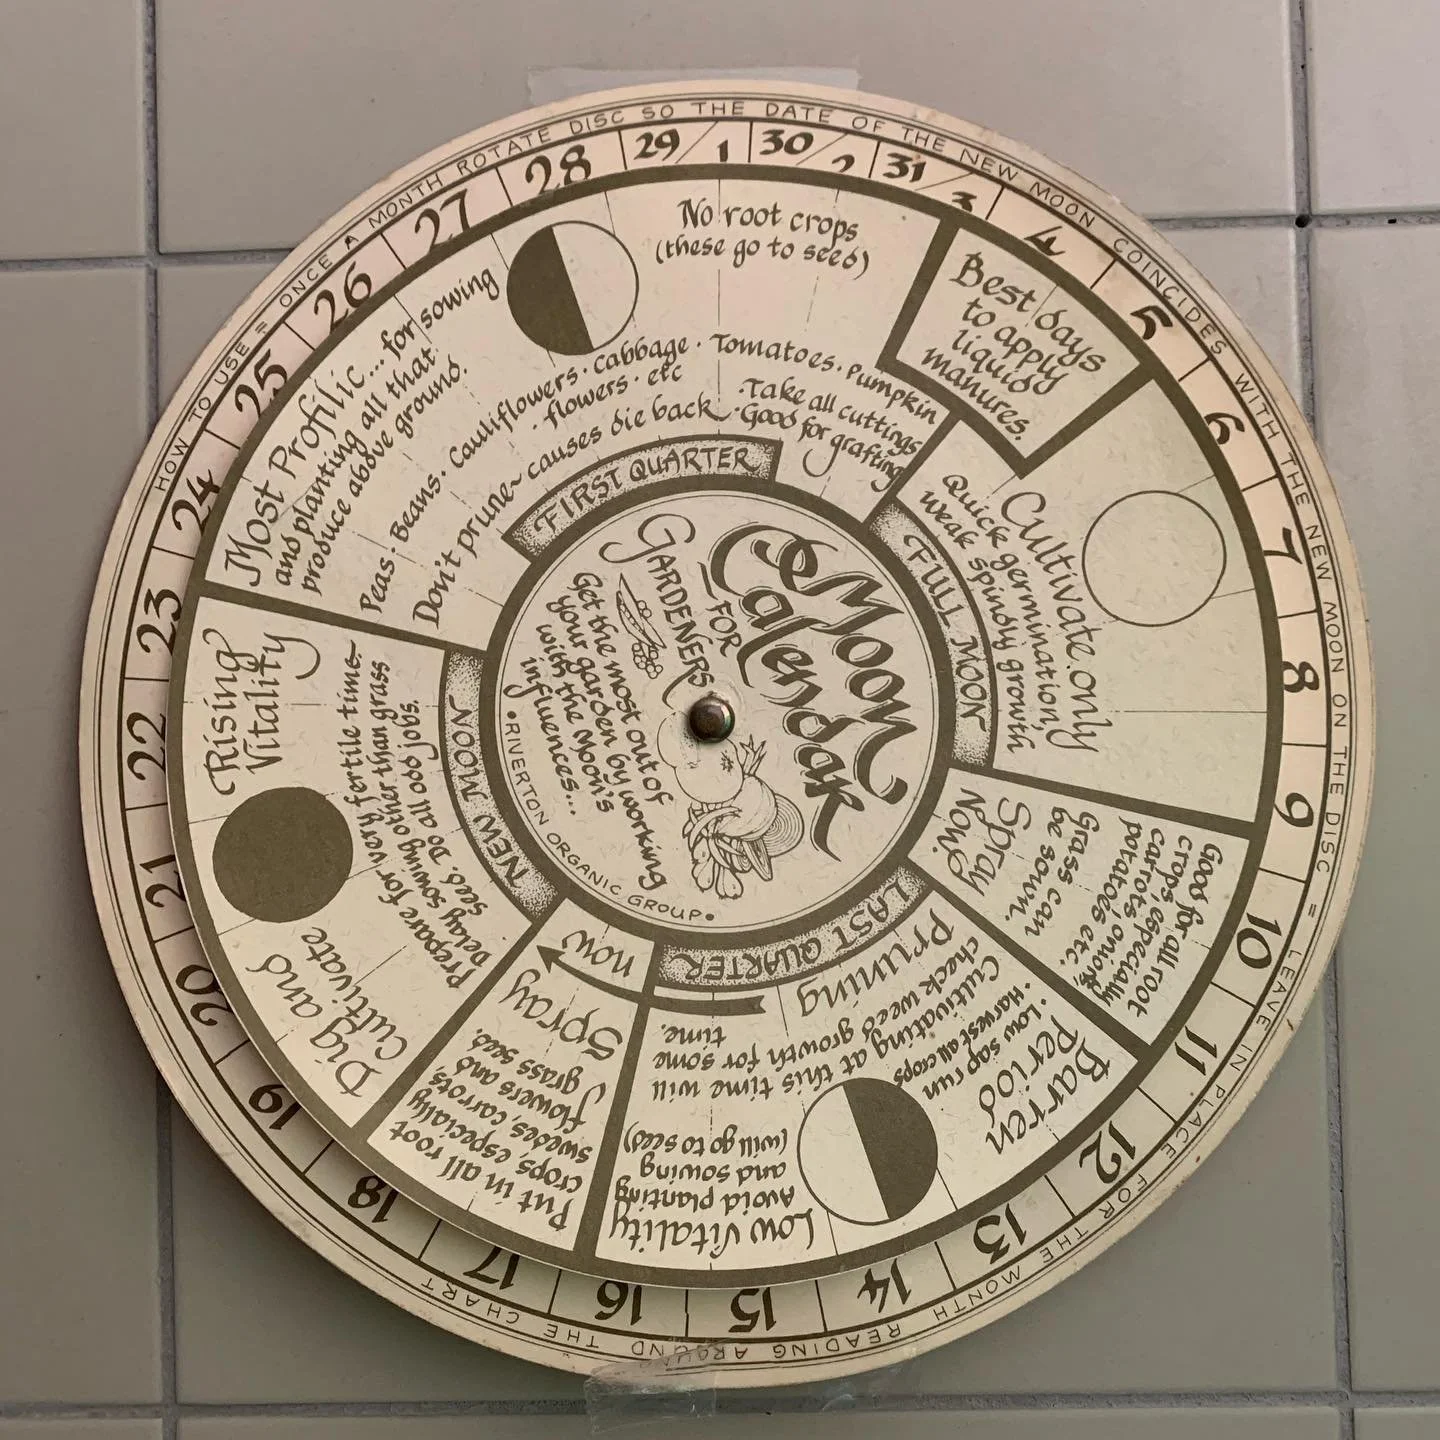 HOW TO USE = ONCE A MONTH ROTATE DISC SO THE DATE OF THE NEW MOON COINCIDES WITH THE NEW MOON ON THE DISC = LEAVE IN PLACE FOR THE MONTH READING AROUND THE CHART
29/1
30/2
31/3
4
5
6
7
8
9
10
11
12
13
14
15
16
17
18
19
20
21
22
23
24
25
26
27
28
Most Profilic... for sowing
and planting all that
produce above ground.
No root crops
(these go to seed)
Peas · Beans · Cauliflowers · Cabbage · Tomatoes · Pumpkin
· flowers · etc
Don't prune ~ causes die back
· Take all cuttings
· Good for grafting
FIRST QUARTER
Best days
to apply
liquid
manures.
Cultivate only
Quick germination,
weak spindly growth
FULL MOON
Good for all root
crops, especially
carrots, onions,
potatoes, etc.
Grass can
be sown.
Spray
Now.
Barren
Period
· Low sap run
· Harvest all crops
Pruning
Cultivating at this time will
check weed growth for some
time.
LAST QUARTER
Low Vitality
Avoid planting
and sowing
(will go to seed)
Put in all root
crops, especially
swedes, carrots,
flowers and
grass seed.
Spray
now
Dig and
Cultivate
Rising
Vitality
Prepare for very fertile time-
Delay sowing other than grass
seed. Do all odd jobs.
NEW MOON
Moon
Calendar
FOR
GARDENERS
Get the most out of
your garden by working
with the Moon's
influences...
· RIVERTON ORGANIC GROUP ·